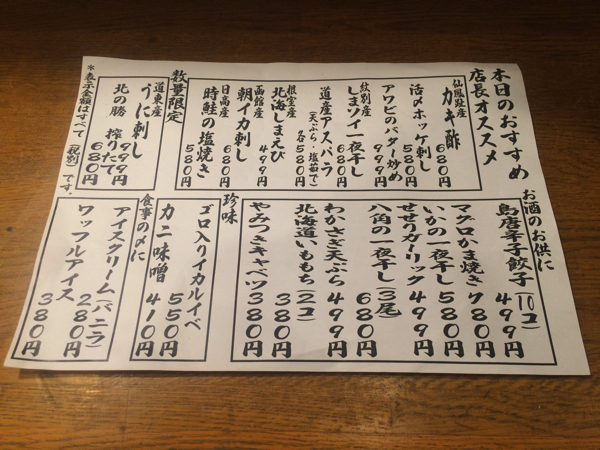 本日のおすすめ
店長オススメ
仙鳳趾産
カキ酢 680円
活〆ホッケ刺し 580円
アワビのバター炒め 999円
紋別産
しまソイ一夜干し 680円
道産アスパラ
(天ぷら・塩茹で) 各580円
根室産
北海しまえび 499円
函館産
朝イカ刺し 680円
日高産
時鮭の塩焼き 580円
数量限定
道東産
うに刺し 999円
北の勝 搾りたて 680円
*表示金額はすべて(税別)です。
お酒のお供に
鳥唐辛子餃子(10コ) 499円
マグロかま焼き 780円
いかの一夜干し 580円
せせりガーリック 499円
八角の一夜干し(3尾) 680円
わかさぎ天ぷら 499円
北海道いももち(2コ) 380円
やみつきキャベツ 380円
珍味
ゴロ入りイカルイベ 550円
カニ味噌 410円
食事の〆に
アイスクリーム(バニラ) 280円
ワッフルアイス 380円